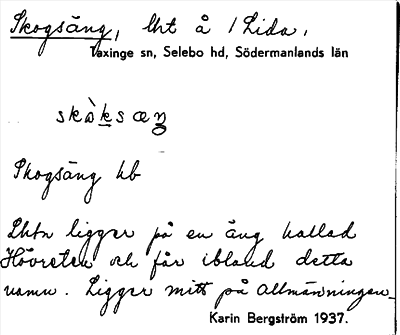 Skogsäng, lht å 1 Lida,
Taxinge sn, Selebo hd, Södermanlands län
skὰksæŋ
Skogsäng hb
Lhtn ligger på en äng kallad
Hövreten och får ibland detta
namn. Ligger mitt på Allmänningen.
Karin Bergström 1937.